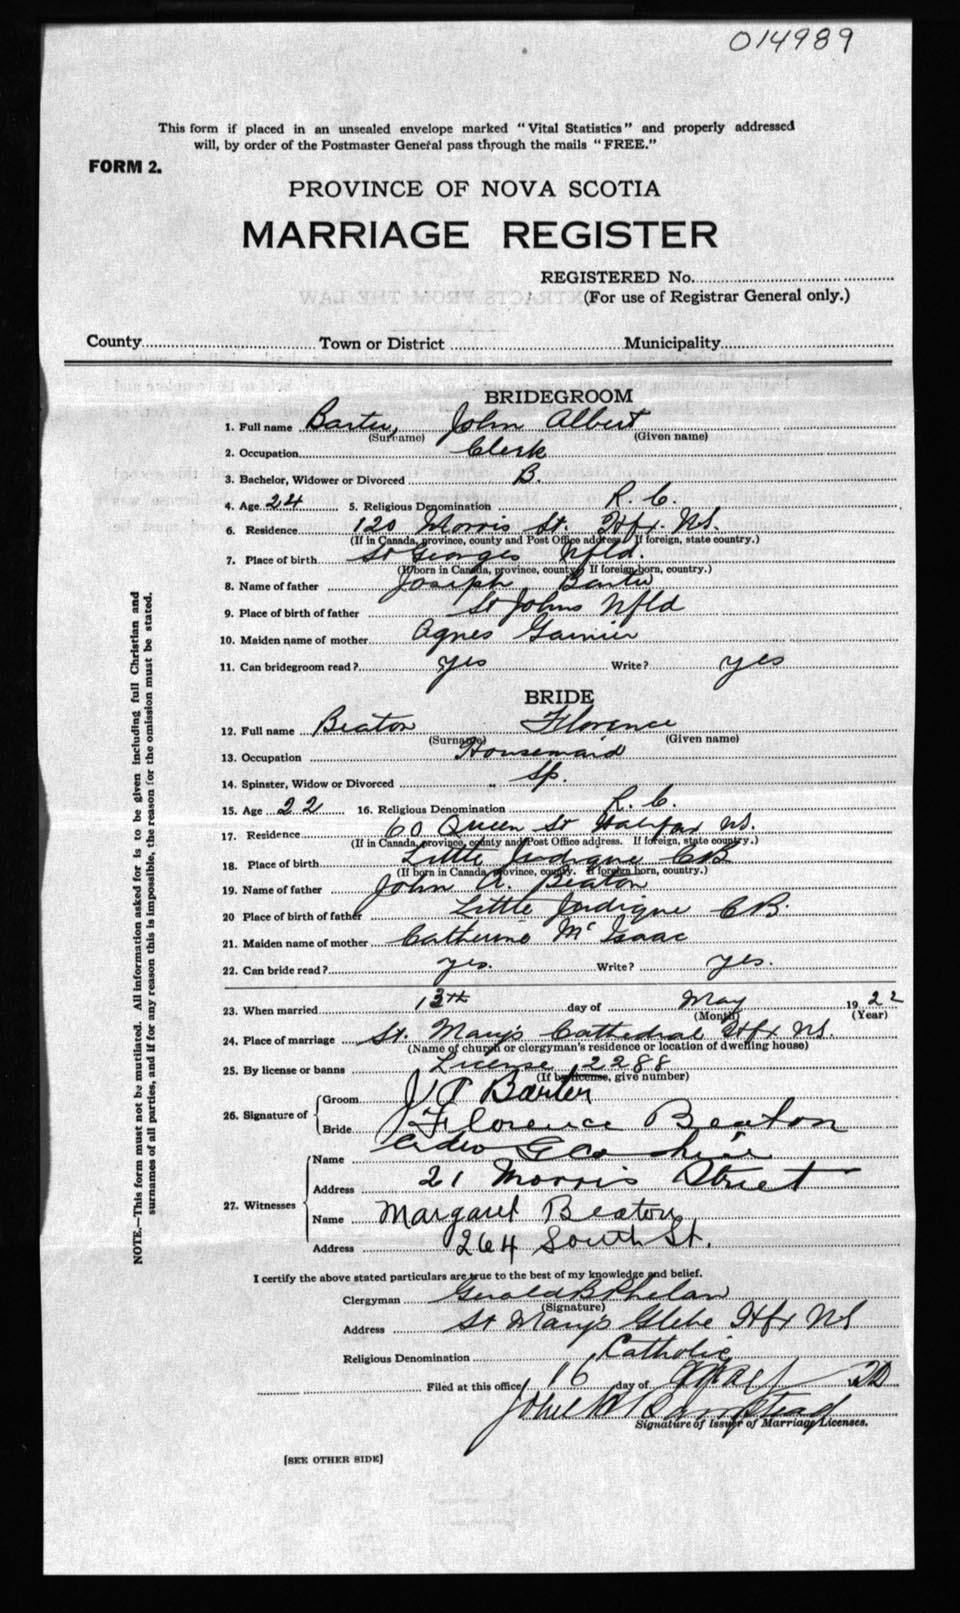 014989
This form if placed in an unsealed envelope marked "Vital Statistics" and properly addressed
will, by order of the Postmaster General pass through the mails "FREE."
FORM 2.
PROVINCE OF NOVA SCOTIA
MARRIAGE REGISTER
REGISTERED No.
(For use of Registrar General only.)
County Town or District Municipality
BRIDEGROOM
1. Full name Barter, John Albert
(Surname) (Given name)
2. Occupation Clerk
3. Bachelor, Widower or Divorced B.
4. Age 24 5. Religious Denomination R. C.
6. Residence 120 Morris St. Hfx. NS.
(If in Canada, province, county and Post Office address. If foreign, state country.)
7. Place of birth St Georges Nfld.
(If born in Canada, province, county. If foreign born, country.)
8. Name of father Joseph Barter
9. Place of birth of father St Johns Nfld
10. Maiden name of mother Agnes Garnier
11. Can bridegroom read? yes Write? yes
BRIDE
12. Full name Beaton Florence
(Surname) (Given name)
13. Occupation Housemaid
14. Spinster, Widow or Divorced Sp.
15. Age 22 16. Religious Denomination R. C.
17. Residence 60 Queen St Halifax NS.
(If in Canada, province, county and Post Office address. If foreign, state country.)
18. Place of birth Little Judique CB
(If born in Canada, province, county. If foreign born, country.)
19. Name of father John A. Beaton
20 Place of birth of father Little Judique CB.
21. Maiden name of mother Catherine McIsaac
22. Can bride read? yes. Write? yes.
23. When married 13th day of May 1922
(Month) (Year)
24. Place of marriage St. Mary's Cathedral Hfx NS.
(Name of church or clergyman's residence or location of dwelling house)
25. By license or banns License 2288
(If by license, give number)
26. Signature of Groom J A Barter
Bride Florence Beaton
27. Witnesses Name
Address 21 Morris Street
Name Margaret Beaton
Address 264 South St.
I certify the above stated particulars are true to the best of my knowledge and belief.
Clergyman Gerald B Phelan
(Signature)
Address St Mary's Glebe Hfx NS
Religious Denomination Catholic
Filed at this office 16 day of May
John
Signature of Issuer of Marriage Licenses.
[SEE OTHER SIDE]
NOTE.—This form must not be mutilated. All information asked for is to be given including full Christian and
surnames of all parties, and if for any reason this is impossible, the reason for the omission must be stated.